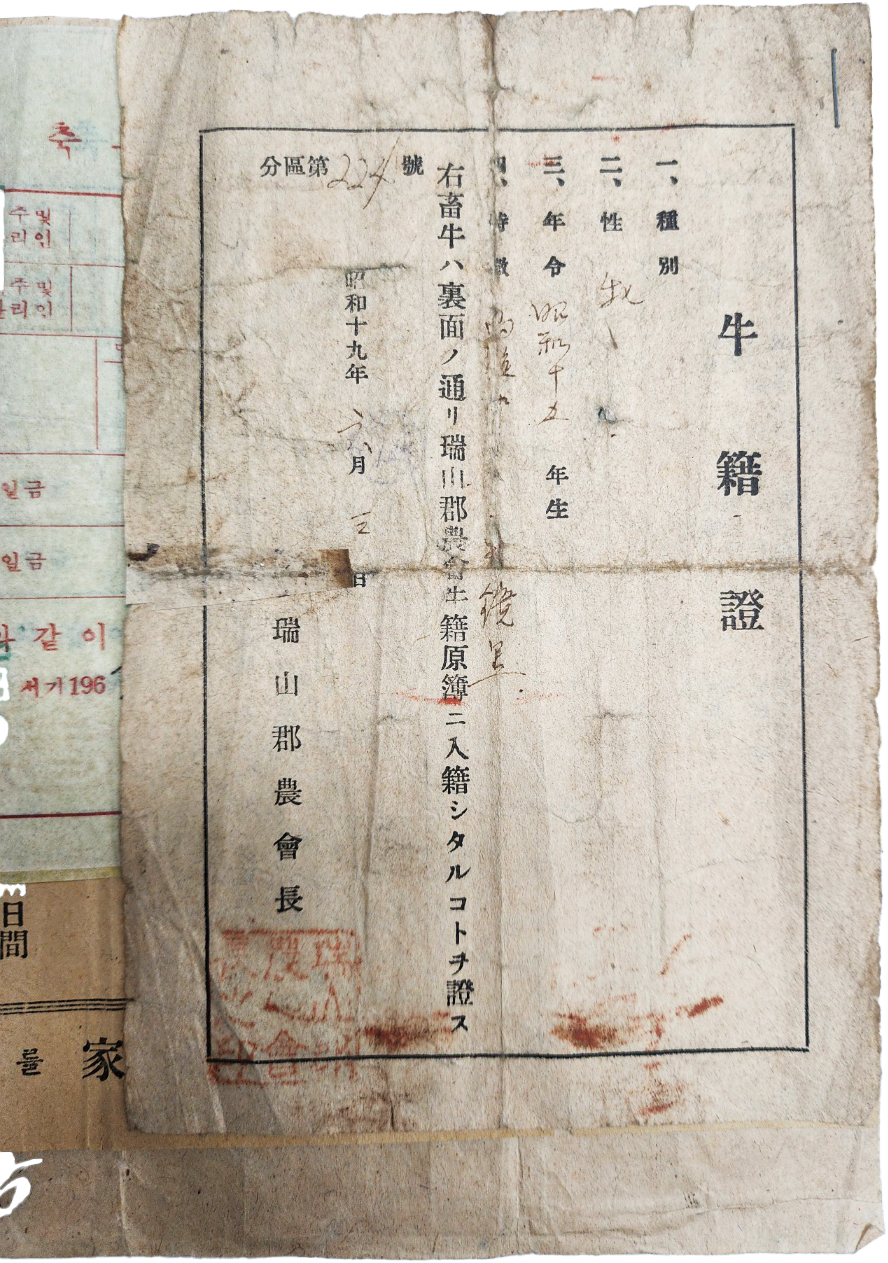 牛籍證
一、種別
二、性 牝
三、年令 昭和十五年生
四、特徵
右畜牛ハ裏面ノ通リ瑞山郡農會牛籍原簿ニ入籍シタルコトヲ證ス
分區第224號
昭和十九年六月三日
瑞山郡農會長
축
주 및
리인
주 및
관리인
일금
일금
와 같이
서기 196
日間
를 家